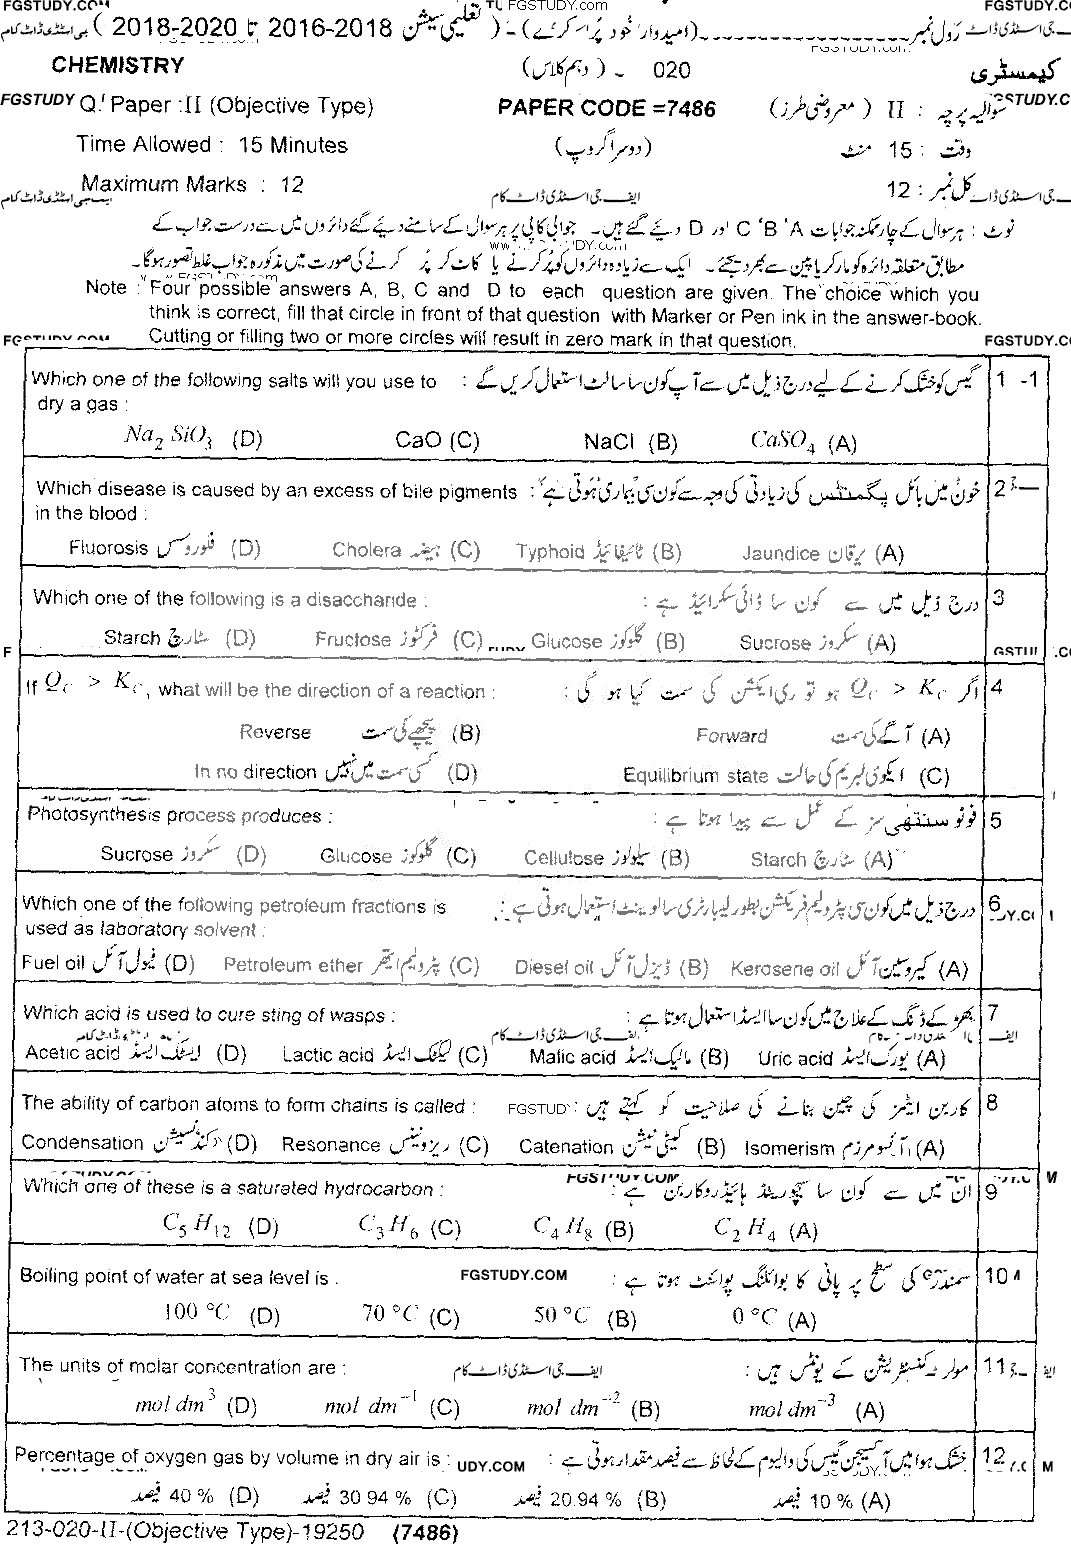 FGSTUDY.COM FGSTUDY.com FGSTUDY.CO
جی اسٹڈی ڈاٹ رول نمبر (امیدوار خود پُر کرے) - ( تعلیمی سیشن 2016-2018 تا 2018-2020 ) جی اسٹڈی ڈاٹ کام
CHEMISTRY 020 - (دہم کلاس) کیمسٹری
FGSTUDY Q. Paper :II (Objective Type) PAPER CODE =7486 سوالیہ پرچہ : II ( معروضی طرز)
Time Allowed : 15 Minutes (دوسرا گروپ) وقت : 15 منٹ
Maximum Marks : 12 ایف جی اسٹڈی ڈاٹ کام کل نمبر : 12
نوٹ : ہر سوال کے چار ممکنہ جوابات A'B'C اور D دیے گئے ہیں۔ جوابی کاپی پر ہر سوال کے سامنے دیے گئے دائروں میں سے درست جواب کے
مطابق متعلقہ دائرہ کو مارکر یا پین سے بھر دیجئے۔ ایک سے زیادہ دائروں کو پُر کرنے یا کاٹ کر پُر کرنے کی صورت میں مذکورہ جواب غلط تصور ہوگا۔
Note : Four possible answers A, B, C and D to each question are given. The choice which you
think is correct, fill that circle in front of that question with Marker or Pen ink in the answer-book.
Cutting or filling two or more circles will result in zero mark in that question. FGSTUDY.CO
Which one of the following salts will you use to گیس کو خشک کرنے کے لیے درج ذیل میں سے آپ کون سا سالٹ استعمال کریں گے : 1 -1
dry a gas :
Na₂SiO₃ (D) CaO (C) NaCl (B) CaSO₄ (A)
Which disease is caused by an excess of bile pigments خون میں بائل پگمنٹس کی زیادتی کی وجہ سے کون سی بیماری ہوتی ہے : 2
in the blood :
Fluorosis فلوروسس (D) Cholera ہیضہ (C) Typhoid ٹائیفائیڈ (B) Jaundice یرقان (A)
Which one of the following is a disaccharide : درج ذیل میں سے کون سا ڈائی سکرائیڈ ہے : 3
Starch سٹارچ (D) Fructose فرکٹوز (C) Glucose گلوکوز (B) Sucrose سکروز (A)
If Q_C > K_C, what will be the direction of a reaction : اگر Q_C > K_C ہو تو ری ایکشن کی سمت کیا ہو گی : 4
Reverse پیچھے کی سمت (B) Forward آگے کی سمت (A)
In no direction کسی سمت میں نہیں (D) Equilibrium state ایکوی لبریم کی حالت (C)
Photosynthesis process produces : فوٹو سنتھی سز کے عمل سے پیدا ہوتا ہے : 5
Sucrose سکروز (D) Glucose گلوکوز (C) Cellulose سیلولوز (B) Starch سٹارچ (A)
Which one of the following petroleum fractions is درج ذیل میں کون سی پٹرولیم فریکشن بطور لیبارٹری سالوینٹ استعمال ہوتی ہے : 6
used as laboratory solvent :
Fuel oil فیول آئل (D) Petroleum ether پٹرولیم ایتھر (C) Diesel oil ڈیزل آئل (B) Kerosene oil کیروسین آئل (A)
Which acid is used to cure sting of wasps : بھڑ کے ڈنگ کے علاج میں کون سا ایسڈ استعمال ہوتا ہے : 7
ایف جی اسٹڈی ڈاٹ کام
Acetic acid ایسٹک ایسڈ (D) Lactic acid لیکٹک ایسڈ (C) Malic acid مالیک ایسڈ (B) Uric acid یورک ایسڈ (A)
The ability of carbon atoms to form chains is called : FGSTUD کاربن ایٹمز کی چین بنانے کی صلاحیت کو کہتے ہیں : 8
Condensation کنڈنسیشن (D) Resonance ریزونینس (C) Catenation کیٹی نیشن (B) Isomerism آئسومرزم (A)
FGSTUDY.COM
Which one of these is a saturated hydrocarbon : ان میں سے کون سا سیچوریٹڈ ہائیڈروکاربن ہے : 9
C₅H₁₂ (D) C₃H₆ (C) C₄H₈ (B) C₂H₄ (A)
Boiling point of water at sea level is : FGSTUDY.COM سمندر کی سطح پر پانی کا بوائلنگ پوائنٹ ہوتا ہے : 10
100 °C (D) 70 °C (C) 50 °C (B) 0 °C (A)
The units of molar concentration are : ایف جی اسٹڈی ڈاٹ کام مولر کنسنٹریشن کے یونٹس ہیں : 11
mol dm³ (D) mol dm⁻¹ (C) mol dm⁻² (B) mol dm⁻³ (A)
Percentage of oxygen gas by volume in dry air is : UDY.COM خشک ہوا میں آکسیجن گیس کی والیوم کے لحاظ سے فیصد مقدار ہوتی ہے : 12
40 % فیصد (D) 30.94 % فیصد (C) 20.94 % فیصد (B) 10 % فیصد (A)
213-020-II-(Objective Type)-19250 (7486)